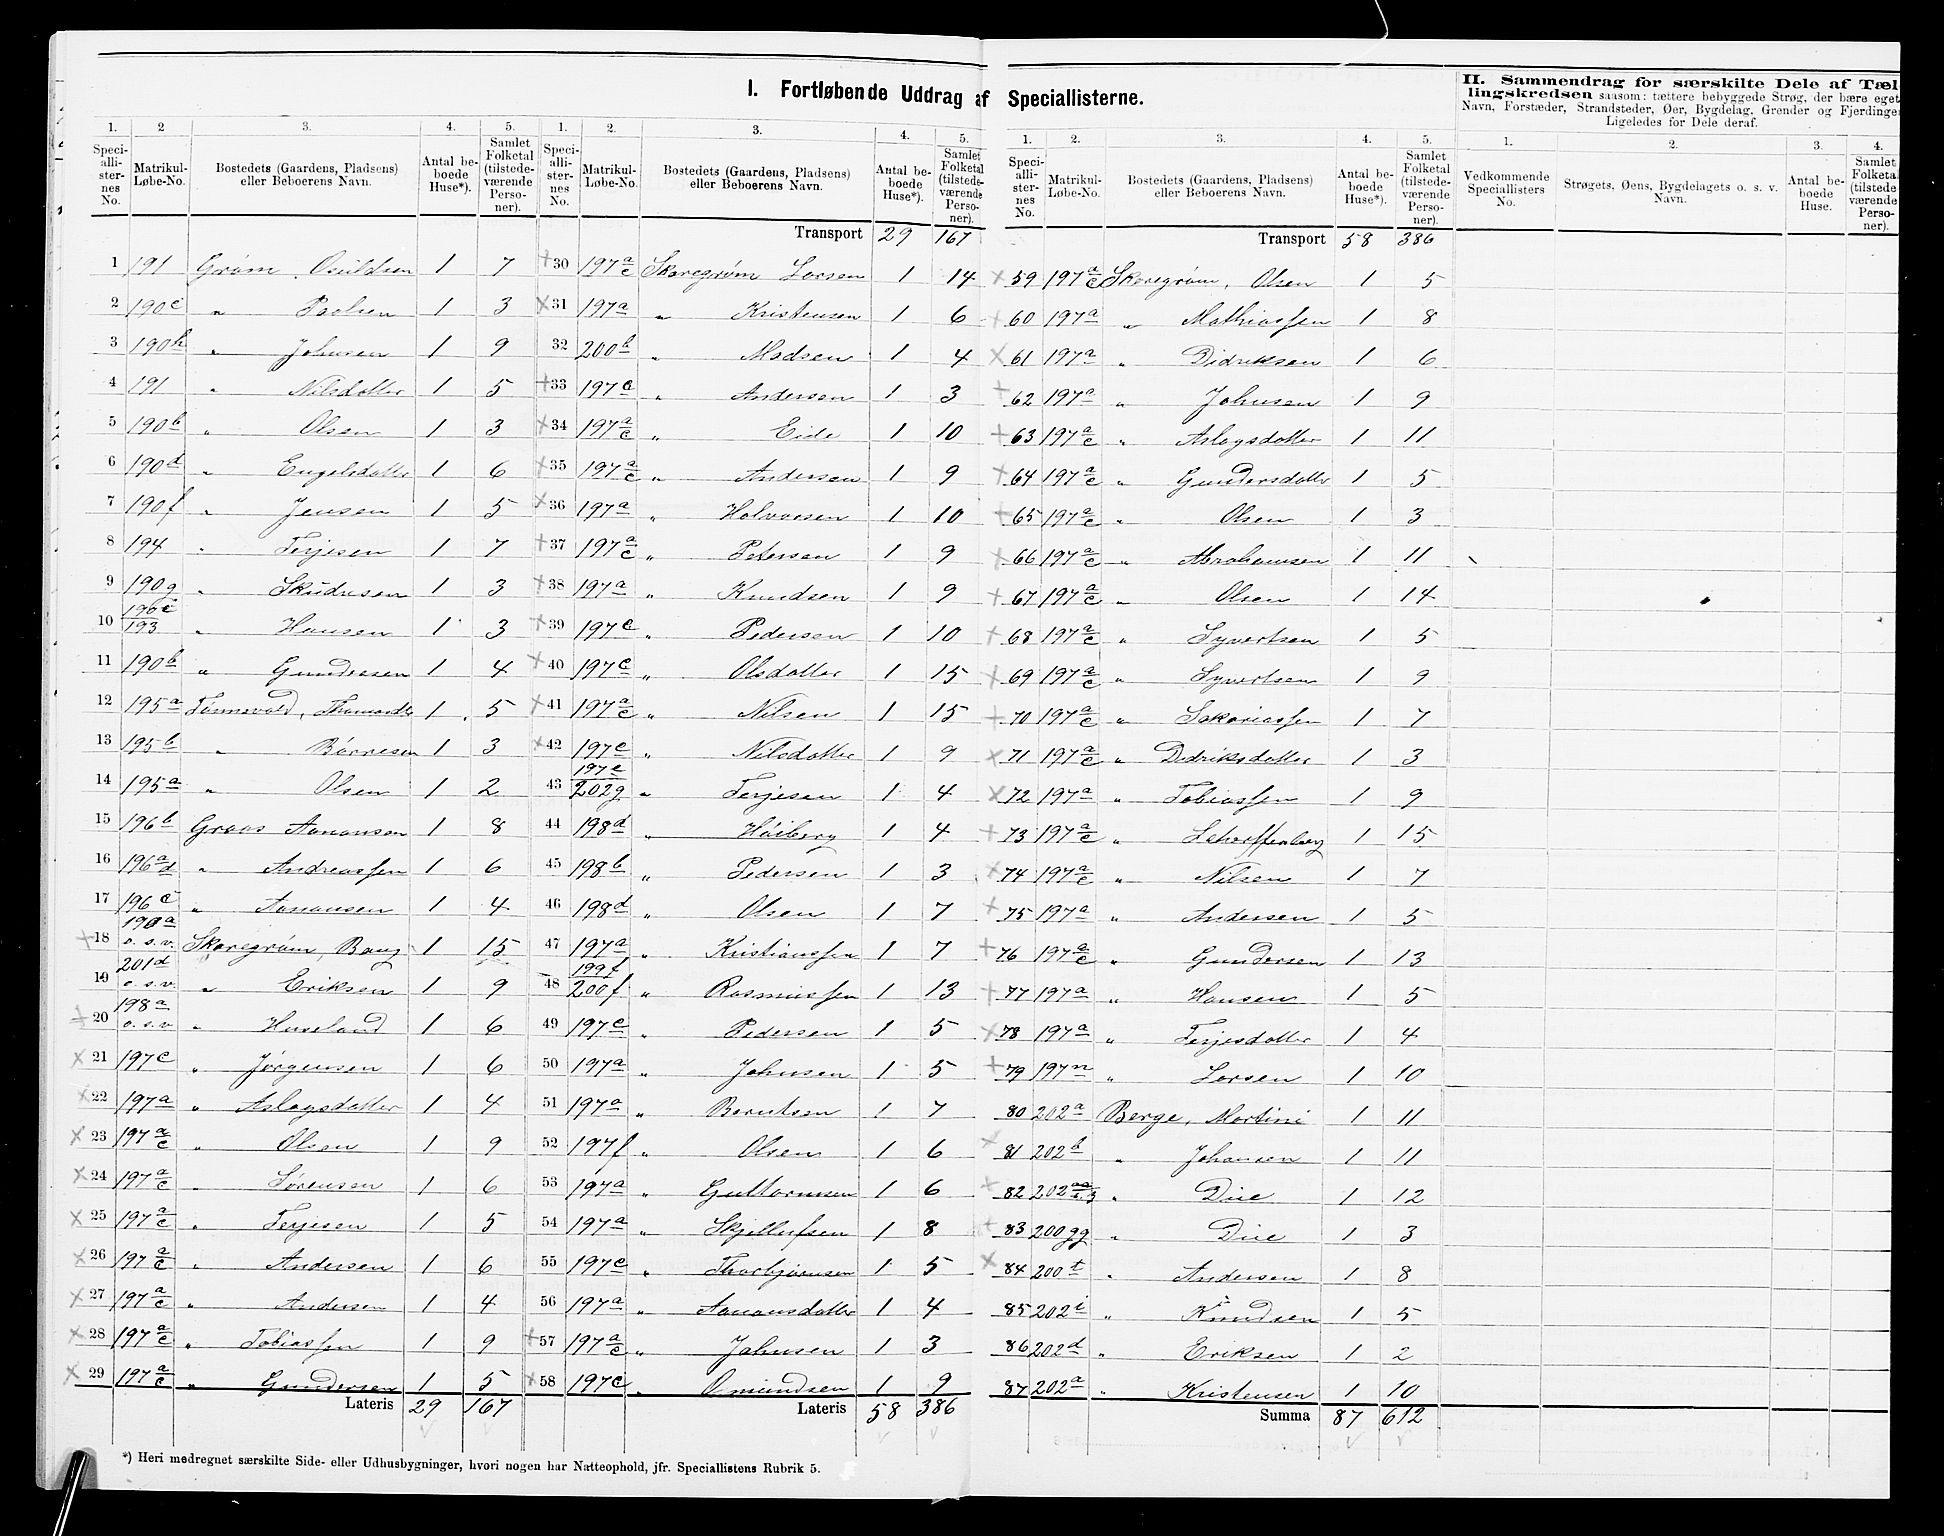 I. Fortløbende Uddrag af Speciallisterne.
II. Sammendrag for særskilte Dele af Tæl-
lingskredsen saasom: tættere bebyggede Strøg, der bære eget
Navn, Forstæder, Strandsteder, Øer, Bygdelag, Grender og Fjerdinger
Ligeledes for Dele deraf.
1. 2 3. 4. 5.
Speciallisternes No. Matrikul-Løbe-No. Bostedets (Gaardens, Pladsens) eller Beboerens Navn. Antal beboede Huse*). Samlet Folketal (tilstedeværende Personer).
1 191 Grøm, Osuldsen 1 7
2 190c " Paulsen 1 3
3 190h " Johnsen 1 9
4 191 " Nilsdatter 1 5
5 190b " Olsen 1 3
6 190d " Engelsdatter 1 6
7 190f " Jensen 1 5
8 194 " Terjesen 1 7
9 190g " 1 3
10 196c/193 " Hansen 1 3
11 190b " Gundersen 1 4
12 195a Tønnevold, 1 5
13 195b " Børresen 1 3
14 195a " Olsen 1 2
15 196b Graas Aanonsen 1 8
16 196a/d " Andreassen 1 6
17 196c " Aanonsen 1 4
18 190a o.s.v. Skaregrøm, Bang 1 15
19 201d o.s.v. " Eriksen 1 9
20 198a o.s.v " Huseland 1 6
21 197c " Jørgensen 1 6
22 197a " Aslagsdatter 1 4
23 197a/c " Olsen 1 9
24 197a/c " Sørensen 1 6
25 197a/c " Terjesen 1 5
26 197a/c " Andersen 1 6
27 197a/c " Andersen 1 4
28 197a/c " Tobiassen 1 9
29 197a/c " Gundersen 1 5
Lateris 29 167
*) Heri medregnet særskilte Side- eller Udhusbygninger, hvori nogen har Natteophold, jfr. Speciallistens Rubrik 5.
1. 2. 3. 4. 5.
Speciallisternes No. Matrikul-Løbe-No. Bostedets (Gaardens, Pladsens) eller Beboerens Navn. Antal beboede Huse*). Samlet Folketal (tilstedeværende Personer).
Transport 29 167
30 197a/c Skaregrøm Larsen 1 14
31 197a " Kristensen 1 6
32 200b " Madsen 1 4
33 197c " Andersen 1 3
34 197a/c " Eide 1 10
35 197a/c " Andersen 1 9
36 197a " Halvorsen 1 10
37 197a/c " Petersen 1 9
38 197a " Knudsen 1 9
39 197c " Pedersen 1 10
40 197c " Olsdatter 1 15
41 197a/c " Nilsen 1 15
42 197c " Nilsdatter 1 9
43 197e/202g " Terjesen 1 4
44 198d " Høiberg 1 4
45 198b " Pedersen 1 3
46 198d " Olsen 1 7
47 197a " Kristianssen 1 7
48 199f/200f " Rasmussen 1 13
49 197c " Pedersen 1 5
50 197a " Johnsen 1 5
51 197a " Berntsen 1 7
52 197f " Olsen 1 6
53 197a " Guttormsen 1 6
54 197a " 1 8
55 197c " Thorbjørnsen 1 5
56 197a " Aanonsdatter 1 4
57 197a/c " Johnsen 1 3
58 197c " Omundsen 1 9
Lateris 58 386
1. 2. 3. 4. 5.
Speciallisternes No. Matrikul-Løbe-No. Bostedets (Gaardens, Pladsens) eller Beboerens Navn. Antal beboede Huse*). Samlet Folketal (tilstedeværende Personer).
Transport 58 386
59 197a/c Skaregrøm, Olsen 1 5
60 197a " Mathiassen 1 8
61 197a " Didriksen 1 6
62 197a " Johnsen 1 9
63 197a/c " Aslagsdatter 1 11
64 197a/c " Gundersdatter 1 5
65 197a/c " Olsen 1 3
66 197a/c " Abrahamsen 1 11
67 197a/c " Olsen 1 14
68 197a/c " Syvertsen 1 5
69 197a/c " Syvertsen 1 9
70 197a/c " Sakariassen 1 7
71 197a/c " Didriksdatter 1 3
72 197a " Tobiassen 1 9
73 197a/c " Scharffenberg 1 15
74 197a/c " Nilsen 1 7
75 197a " Andersen 1 5
76 197a/c " Gundersen 1 13
77 197a " Hansen 1 5
78 197a " Terjesdatter 1 4
79 197n " Larsen 1 10
80 202a Berge, Martini 1 11
81 202b " Johansen 1 11
82 202 " Due 1 12
83 200gg " Due 1 3
84 200t " Andersen 1 8
85 202i " Knudsen 1 5
86 202d " Eriksen 1 2
87 202a " Kristensen 1 10
Summa 87 612
1. 2. 3. 4.
Vedkommende Speciallisters No. Strøgets, Øens, Bygdelagets o. s. v. Navn. Antal beboede Huse. Samlet Folketal (tilstedeværende Personer).